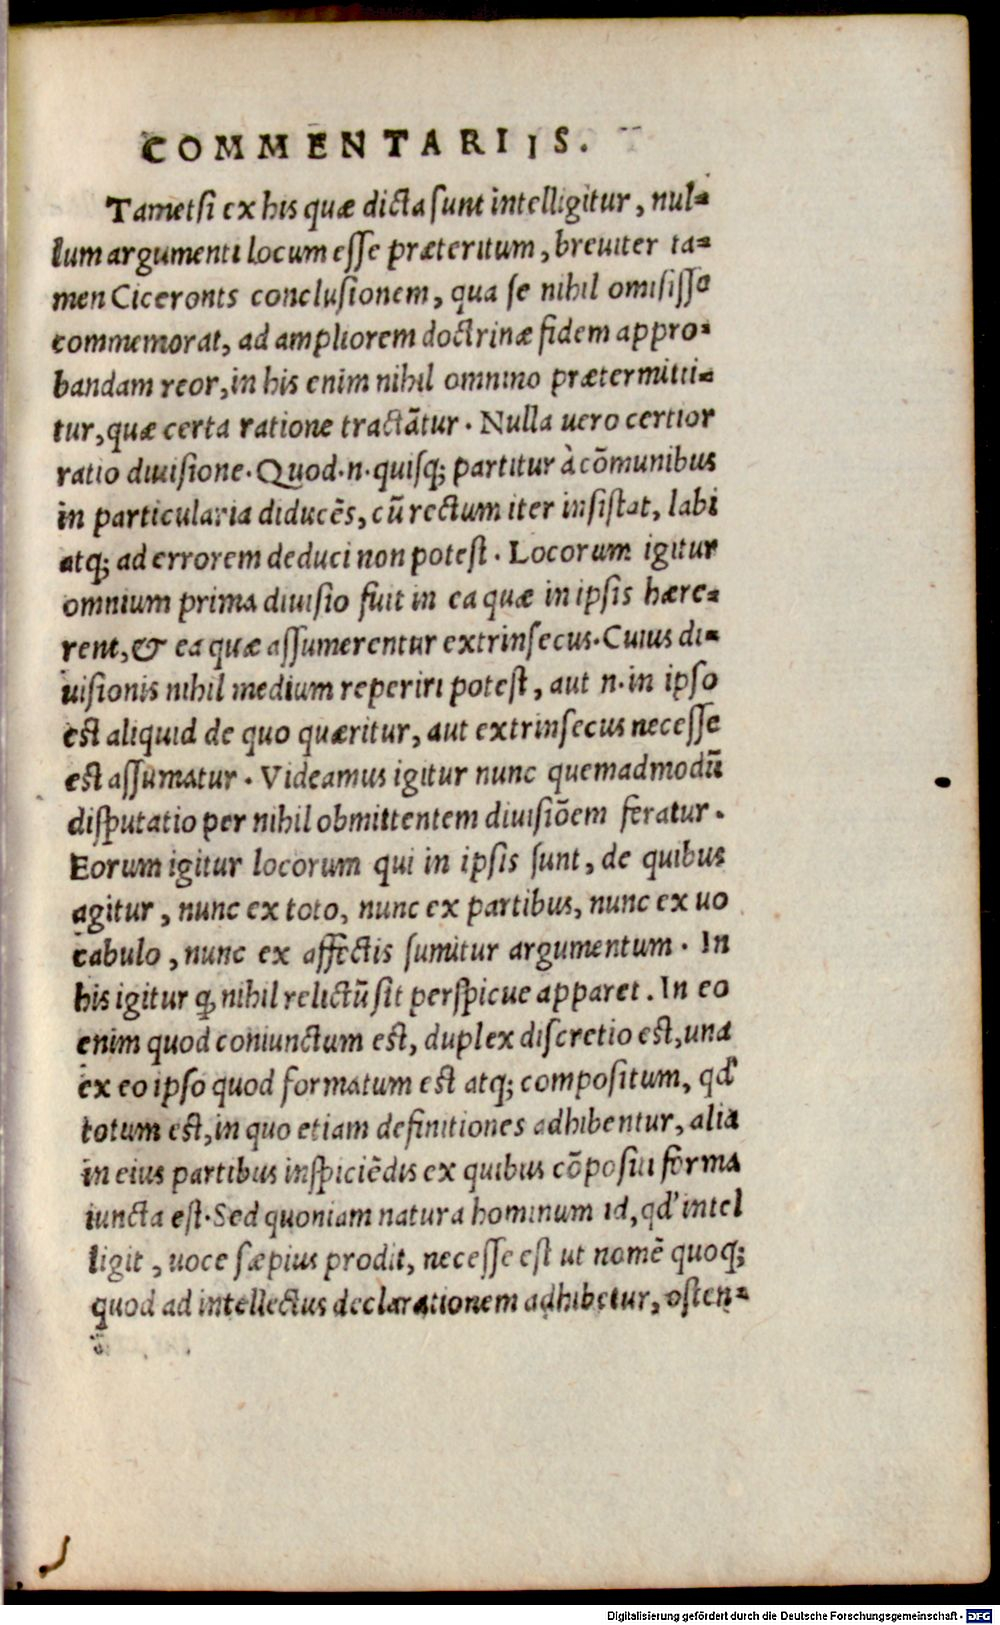 COMMENTARIIS.
Tametsi ex his quæ dicta sunt intelligitur, nul-
lum argumenti locum esse præteritum, breuiter ta-
men Ciceronis conclusionem, qua se nihil omisisse
commemorat, ad ampliorem doctrinæ fidem appro-
bandam reor, in his enim nihil omnino prætermitti-
tur, quæ certa ratione tractãtur. Nulla uero certior
ratio diuisione. Quod .n. quisq; partitur à cõmunibus
in particularia diducẽs, cũ rectum iter insistat, labi
atq; ad errorem deduci non potest. Locorum igitur
omnium prima diuisio fuit in ea quæ in ipsis hære-
rent, & ea quæ assumerentur extrinsecus. Cuius di-
uisionis nihil medium reperiri potest, aut n. in ipso
est aliquid de quo quæritur, aut extrinsecus necesse
est assumatur. Videamus igitur nunc quemadmodũ
disputatio per nihil obmittentem diuisiõem feratur.
Eorum igitur locorum qui in ipsis sunt, de quibus
agitur, nunc ex toto, nunc ex partibus, nunc ex uo
cabulo, nunc ex affectis sumitur argumentum. In
his igitur ꝙ nihil relictũ sit perspicue apparet. In eo
enim quod coniunctum est, duplex discretio est, una
ex eo ipso quod formatum est atq; compositum, qđ
totum est, in quo etiam definitiones adhibentur, alia
in eius partibus inspiciẽdis ex quibus cõpositi forma
iuncta est. Sed quoniam natura hominum id, qđ intel
ligit, uoce sæpius prodit, necesse est ut nomẽ quoq;
quod ad intellectus declarationem adhibetur, osten-
Digitalisierung gefördert durch die Deutsche Forschungsgemeinschaft - DFG